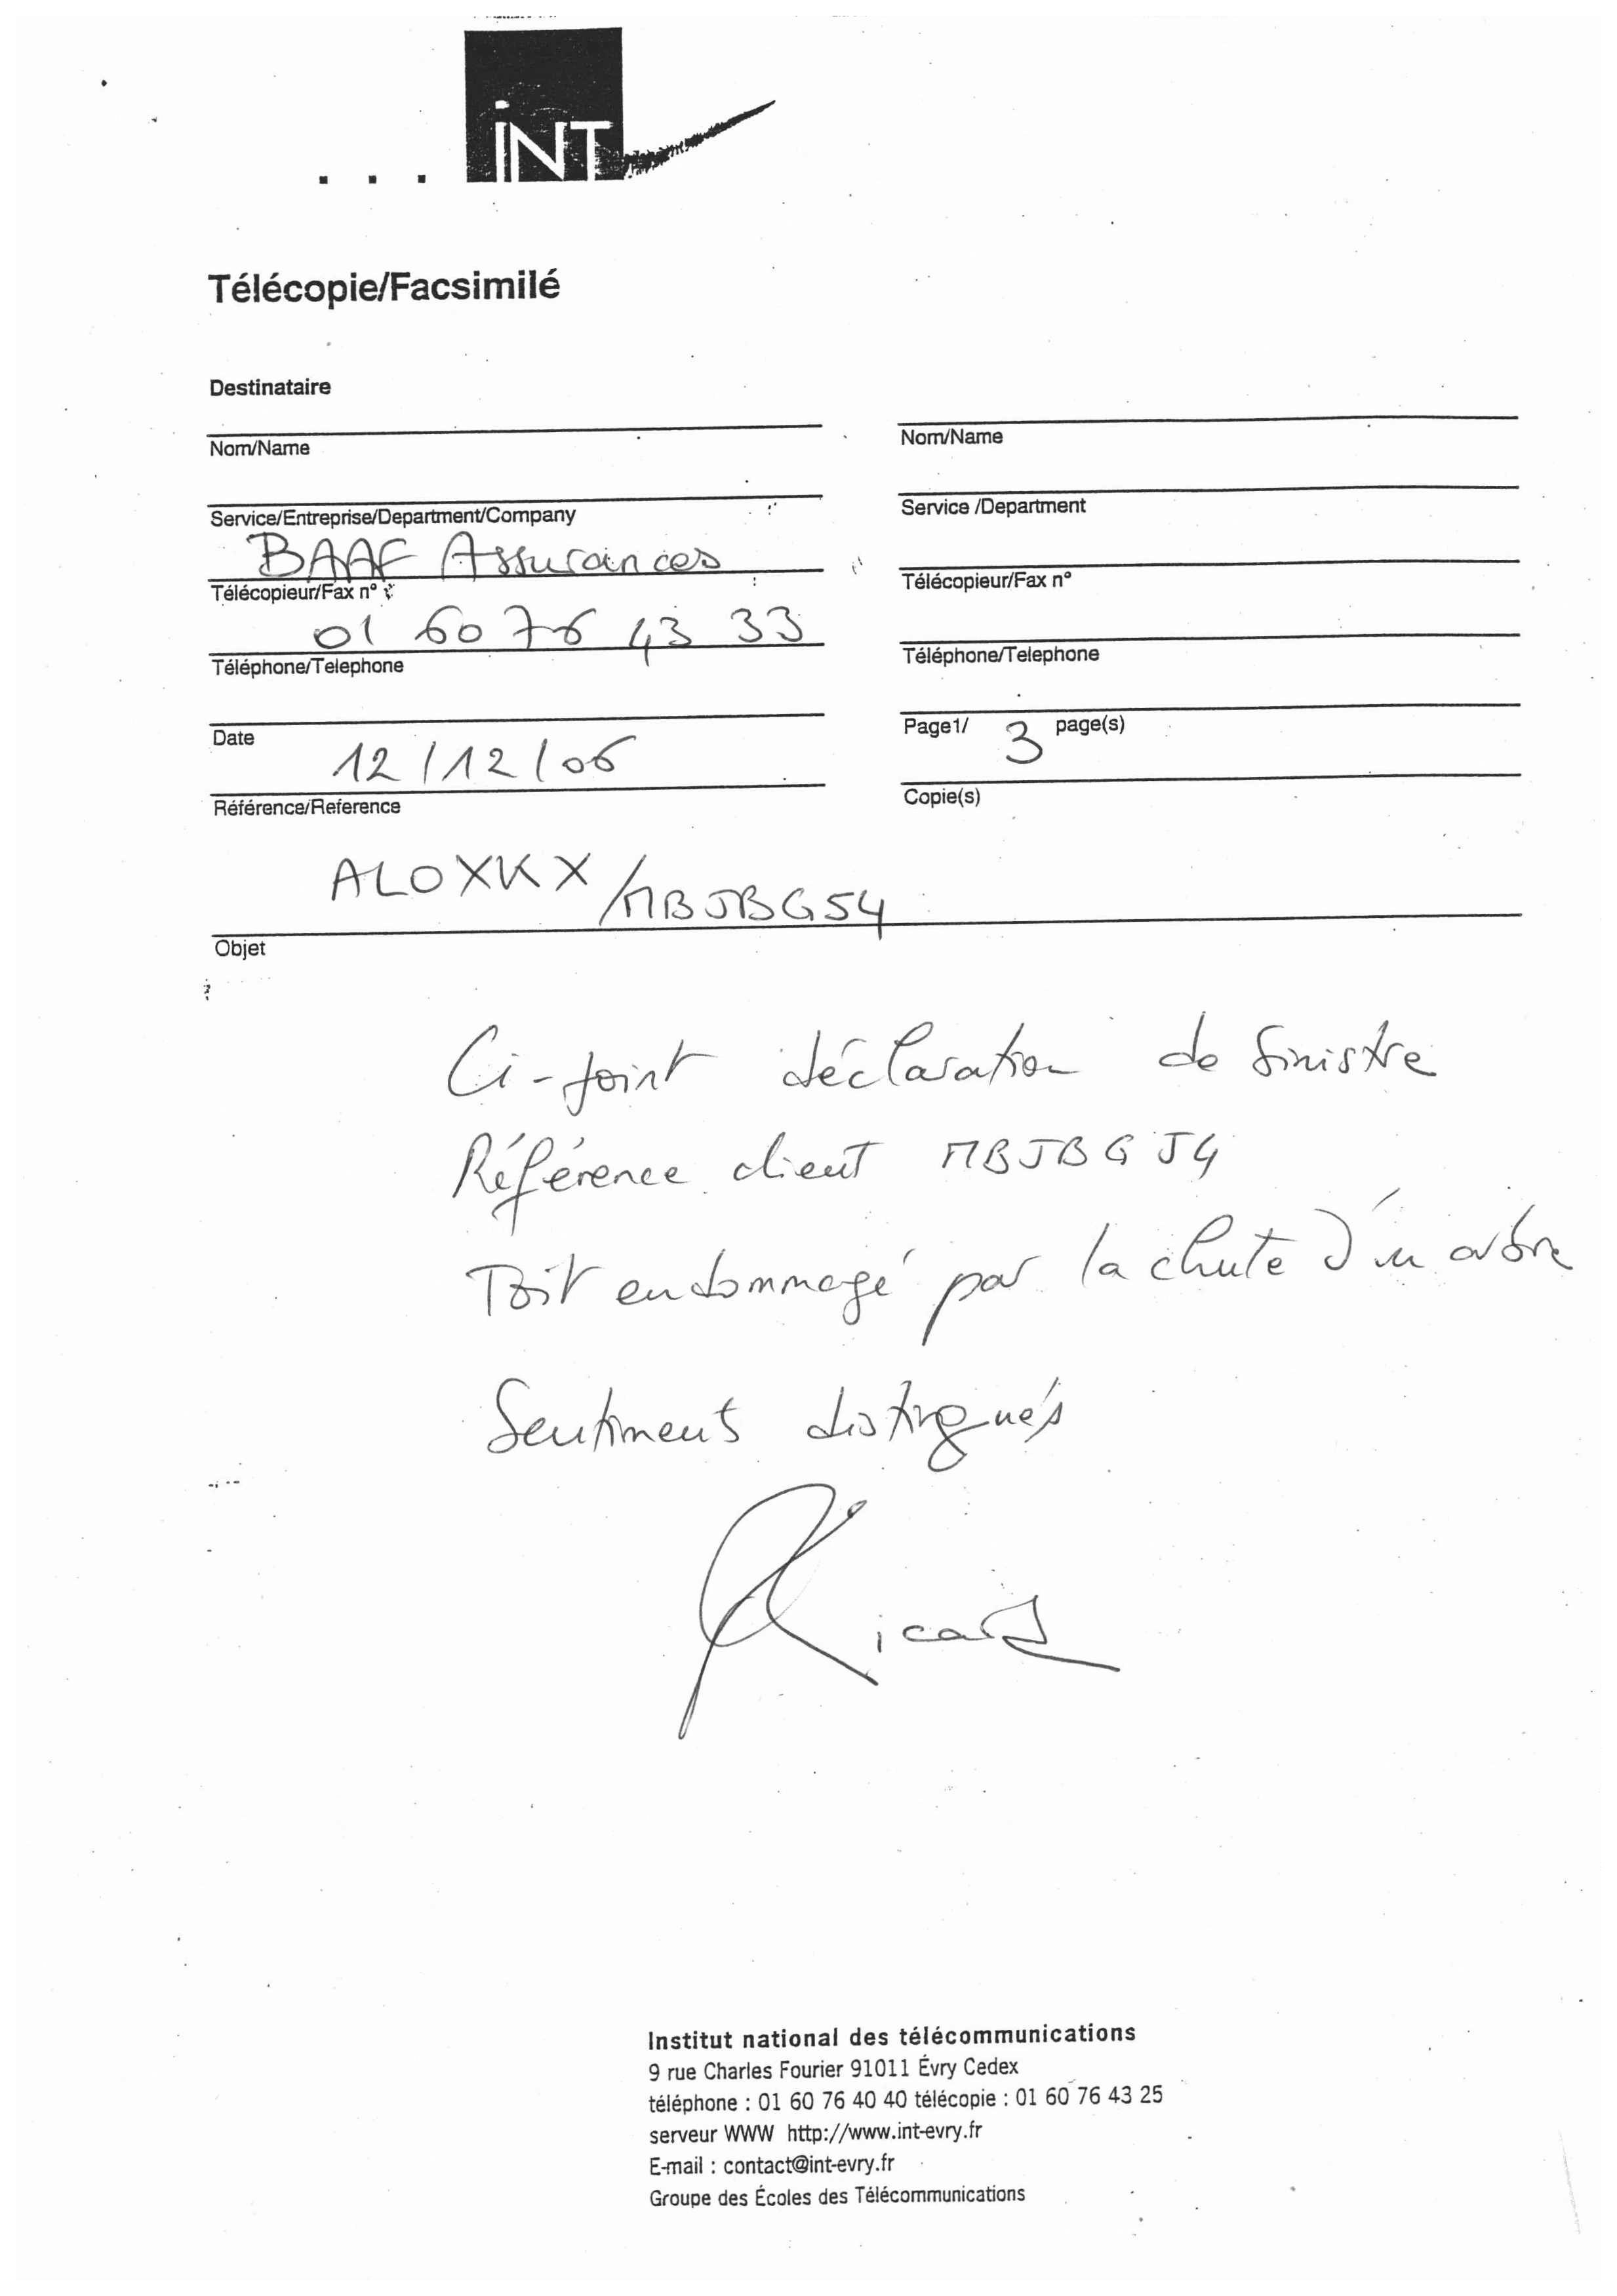 iNT
Télécopie/Facsimilé
Destinataire
Nom/Name
Service/Entreprise/Department/Company
BAAF Assurances
Télécopieur/Fax n°
01 60 76 43 33
Téléphone/Telephone
Date
12/12/06
Référence/Reference
Nom/Name
Service /Department
Télécopieur/Fax n°
Téléphone/Telephone
Page1/ 3 page(s)
Copie(s)
ALOXKX /MBJBG54
Objet
Ci-joint déclaration de sinistre
Référence client MBJBG54
Toit endommagé par la chute d'un arbre
Sentiments distingués
Ricard
Institut national des télécommunications
9 rue Charles Fourier 91011 Évry Cedex
téléphone : 01 60 76 40 40 télécopie : 01 60 76 43 25
serveur WWW http://www.int-evry.fr
E-mail : contact@int-evry.fr
Groupe des Écoles des Télécommunications